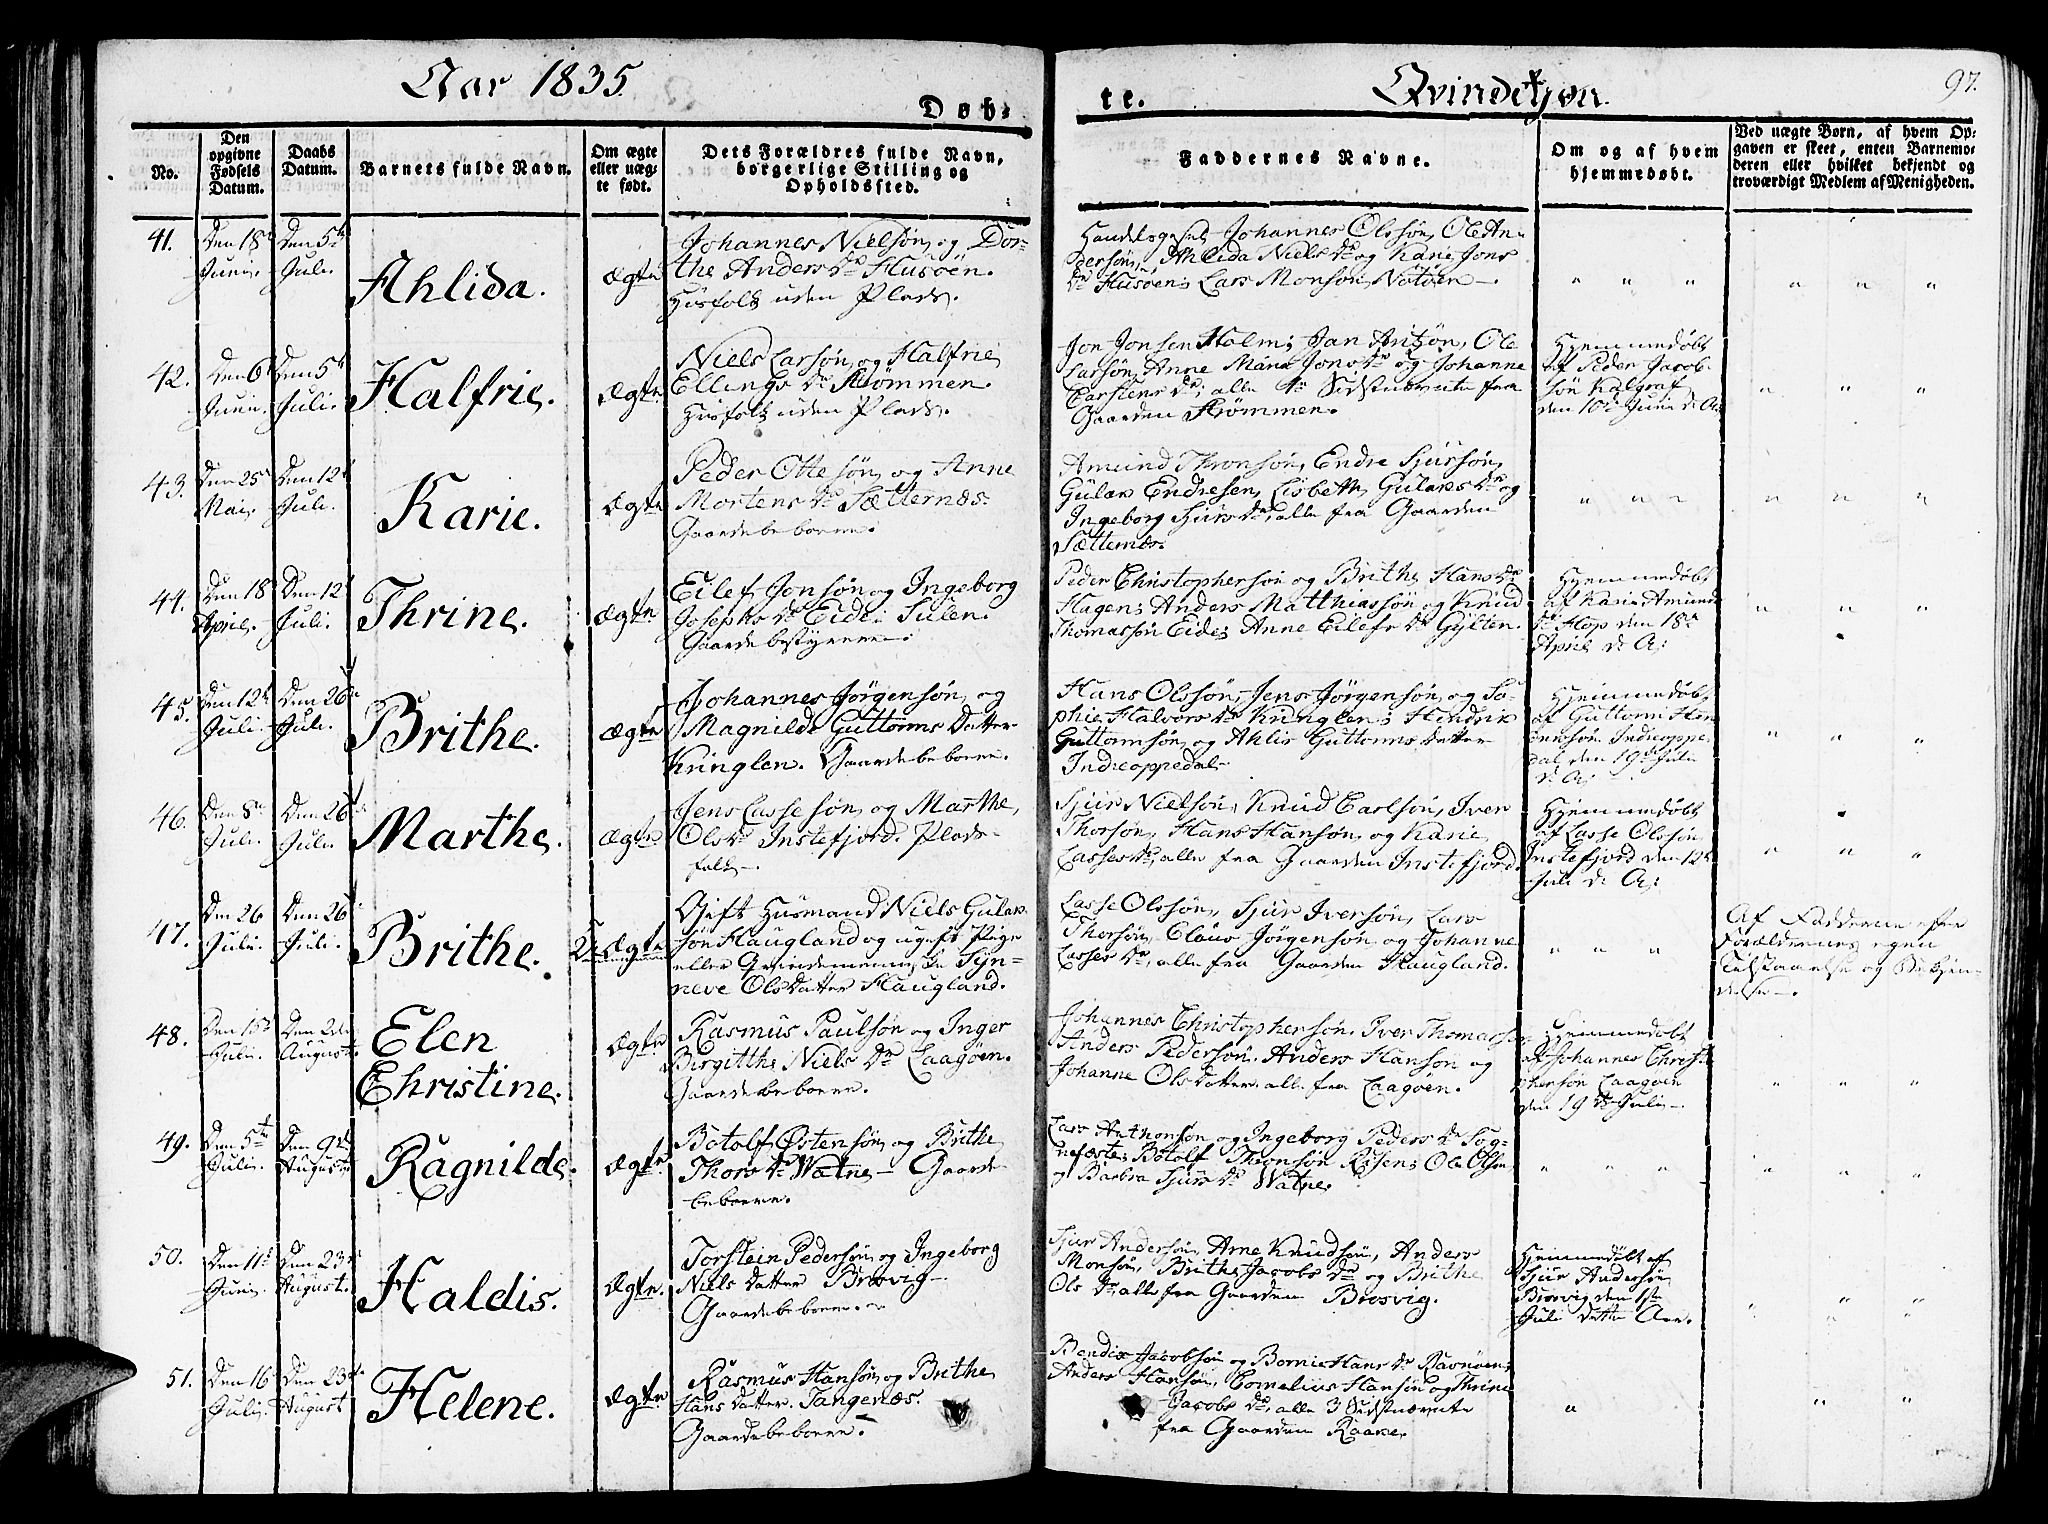 Aar 1835.
Døb-
te.
Qvindekjøn.
97.
No.
Den opgivne Fødsels Datum.
Daabs Datum.
Barnets fulde Navn.
Om ægte eller uægte født.
Dets Forældres fulde Navn, borgerlige Stilling og Opholdssted.
Faddernes Navne.
Om og af hvem hjemmedøbt.
Ved uægte Børn, af hvem Opgaven er skeet, enten Barnemoderen eller hvilket bekjendt og troværdigt Medlem af Menigheden.
41.
Den 18de
Juni.
Den 5te
Juli.
Ahlida.
Ægte
Johannes Nielsøn og Dor-
the Anders Dr Husøen.
Huusfolk uden Plads.
Johannes Olssøn, Ole An-
dersøn, Ahlida Niels Dr og Karie Jons
Dr Husøen; Lars Monsøn Notøen
42.
Den 6te
Juni.
Den 5te
Juli.
Halfrie.
Ægte
Niels Larsøn og Halfrie
Ellings Dr Strømmen.
Huusfolk uden Plads.
Jon Jonsen Holm; Jan Antzøn, Ole
Larsøn, Anne Maria Jons Dr og Johanne
Carstens Dr, alle 4re Sidstnævnte fra
Gaarden Strømmen.
Hjemmedøbt
af Peder Jacob-
søn Kalgraf
den 10de Juni d. A.
43.
Den 25de
Mai.
Den 12te
Juli.
Karie.
Ægte
Peder Ottesøn og Anne
Mortens Dr Sætternæs
Gaardbeboere.
Amund Thronsøn, Endre Sjursøn,
Gulak Endresen, Lisbeth Gulaks Dr og
Ingeborg Sjurs Dr, alle fra Gaarden
Sætternæs.
44.
Den 18de
April.
Den 12te
Juli.
Thrine.
Ægte
Eilef Jonsøn og Ingeborg
Josephs Dr Eide i Sulen.
Gaardbestyrere.
Peder Christophersøn og Brithe Hans Dr
Hagen; Anders Matthiassøn og Knud
Thomassøn Eide; Anne Eilefs Dr Gylten.
Hjemmedøbt
af Karie Amunds
Dr Flop den 18de
April d. A.
45.
Den 12te
Juli.
Den 26de
Juli.
Brithe.
Ægte
Johannes Jørgensøn og
Magnilde Guttorms Datter
Kringlen. Gaardbeboere.
Hans Olssøn, Jens Jørgensøn og So-
phie Halvors Dr Kringlen; Hendrik
Guttormsøn og Ahlis Guttorms Datter
Indreoppedal
Hjemmedøbt
af Guttorm Hen-
Indreoppe-
dal den 19de Juli
d. A.
46.
Den 8de
Juli.
Den 26de
Juli.
Marthe.
Ægte
Jens Lassesøn og Marthe
Ols Dr Instefjord. Plads-
folk
Sjur Nielsøn, Knud Carlsøn, Iver
Thorsøn, Hans Hansøn og Karie
Lasses Dr, alle fra Gaarden Instefjord.
Hjemmedøbt
af Lasse Olssøn
Instefjord den 12te
Juli d. A.
47.
Den 26
Juli.
Den 26
Juli.
Brithe.
Uægte
Gift Husmand Niels Gulak-
søn Haugland og ugift Pige
eller Qvindemenneske Syn-
neve Ols Datter Haugland.
Lasse Olssøn, Sjur Iversøn, Lars
Thorsøn, Claus Jørgensøn og Johanne
Lasses Dr, alle fra Gaarden Haugland.
Af Fadderne efter
Forældrenes egen
Tilstaaelse og Bekjen-
delse
48.
Den 15de
Juli.
Den 2den
August.
Elen
Christine.
Ægte
Rasmus Paulsøn og Inger
Birgitthe Niels Dr Laagøen.
Gaardbeboere.
Johannes Christophersøn, Iver Thomassøn
Anders Pedersøn, Anders Hansøn og
Johanne Ols Datter, alle fra Laagøen.
Hjemmedøbt
af Johannes Christo-
phersøn Laagøen
den 19de Juli
49.
Den 5te
Juli.
Den 9de
August
Ragnilde.
Ægte
Botolf Østensøn og Brithe
Thors Dr Watne Gaard-
beboere.
Lars Anthonsøn og Ingeborg Peders Dr Sog-
nefæste; Botolf Risen; Ole Olsen
og Barbra Sjurs Dr Watne.
50.
Den 11te
Juni.
Den 23de
August.
Haldis.
Ægte.
Torstein Pedersøn og Ingeborg
Niels Datter Brosvig
Gaardbeboere.
Sjur Andersøn, Arne Knudsøn, Anders
Monsøn, Brithe Jacobs Dr og Brithe
Ols Dr alle fra Gaarden Brosvig.
Hjemmedøbt af
Sjur Andersøn
Brosvig den 1ste
Juli dette Aar.
51.
Den 16
Juli.
Den 23de
August
Helene.
Ægte
Rasmus Hansøn og Brithe
Hans Datter Tangenæs.
Gaardbeboere.
Bendix Jacobsøn og Bornie Hans Dr Ravnøen;
Anders Hansøn, Cornelius Hansøn og Thrine
Jacobs Dr, alle 3 Sidstnævnte
fra Gaarden Raake.